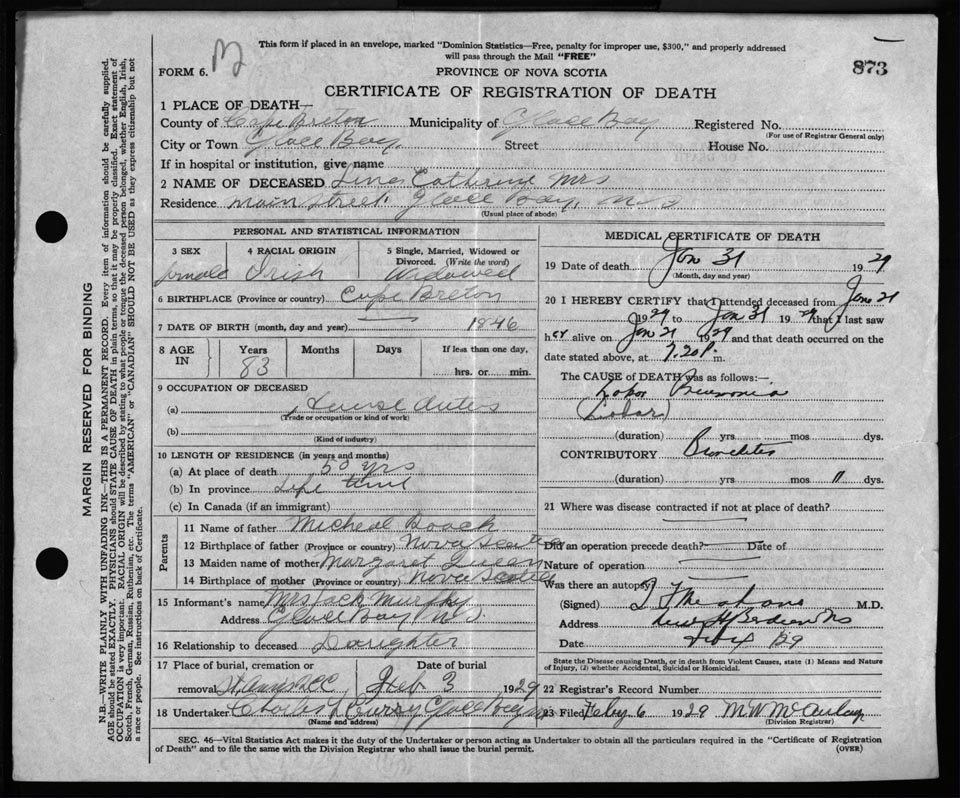 This form if placed in an envelope, marked "Dominion Statistics—Free, penalty for improper use, $300," and properly addressed
will pass through the Mail "FREE"
FORM 6.
PROVINCE OF NOVA SCOTIA
873
CERTIFICATE OF REGISTRATION OF DEATH
1 PLACE OF DEATH—
County of Cape Breton Municipality of Glace Bay Registered No.
(For use of Registrar General only)
City or Town Glace Bay, Street House No.
If in hospital or institution, give name
2 NAME OF DECEASED Cathrine Mrs
Residence Main Street Glace Bay, N S
(Usual place of abode)
PERSONAL AND STATISTICAL INFORMATION
3 SEX 4 RACIAL ORIGIN 5 Single, Married, Widowed or
Divorced. (Write the word)
female Irish Widowed
6 BIRTHPLACE (Province or country) Cape Breton
7 DATE OF BIRTH (month, day and year) — 1846
8 AGE IN Years Months Days If less than one day,
83 hrs. or min.
9 OCCUPATION OF DECEASED
(a) House duties
(Trade or occupation or kind of work)
(b)
(Kind of industry)
10 LENGTH OF RESIDENCE (in years and months)
(a) At place of death 50 yrs
(b) In province Life time
(c) In Canada (if an immigrant)
Parents
11 Name of father Micheal Roach
12 Birthplace of father (Province or country) Nova Scotia
13 Maiden name of mother Margaret
14 Birthplace of mother (Province or country) Nova Scotia
15 Informant's name Mrs Jack Murphy
Address Glace Bay N S
16 Relationship to deceased Daughter
17 Place of burial, cremation or Date of burial
removal St Anns Feb 3 1929
18 Undertaker Charles Curry Glace Bay
(Name and address)
MEDICAL CERTIFICATE OF DEATH
19 Date of death Jan 31 1929
(Month, day and year)
20 I HEREBY CERTIFY that I attended deceased from Jan 21
1929 to Jan 31 1929 that I last saw
her alive on Jan 21 1929 and that death occurred on the
date stated above, at 7.20 P. m.
The CAUSE of DEATH was as follows:—
Lobar Pneumonia
(Lobar)
(duration) yrs mos dys.
CONTRIBUTORY Bronchitis
(duration) yrs. mos 11 dys.
21 Where was disease contracted if not at place of death?
Did an operation precede death? Date of
Nature of operation
Was there an autopsy?
(Signed) M.D.
Address
Date
State the Disease causing Death, or in death from Violent Causes, state (1) Means and Nature
of Injury, (2) whether Accidental, Suicidal or Homicidal.
22 Registrar's Record Number
23 Filed Feby 6 1929
(Division Registrar)
SEC. 46—Vital Statistics Act makes it the duty of the Undertaker or Person acting as Undertaker to obtain all the particulars required in the "Certificate of Registration
of Death" and to file the same with the Division Registrar who shall issue the burial permit.
(OVER)
MARGIN RESERVED FOR BINDING
N.B.—WRITE PLAINLY WITH UNFADING INK—THIS IS A PERMANENT RECORD. Every item of information should be carefully supplied.
AGE should be stated EXACTLY. PHYSICIANS should STATE CAUSE OF DEATH in plain terms, so that it may be properly classified. Exact statement of
OCCUPATION is very important. RACIAL ORIGIN will be described by stating to what people or tongue the deceased person belonged, whether English, Irish,
Scotch, French, German, Russian, Ruthenian, etc. The terms "AMERICAN" or "CANADIAN" SHOULD NOT BE USED as they express citizenship but not
a race or people. See instructions on back of Certificate.